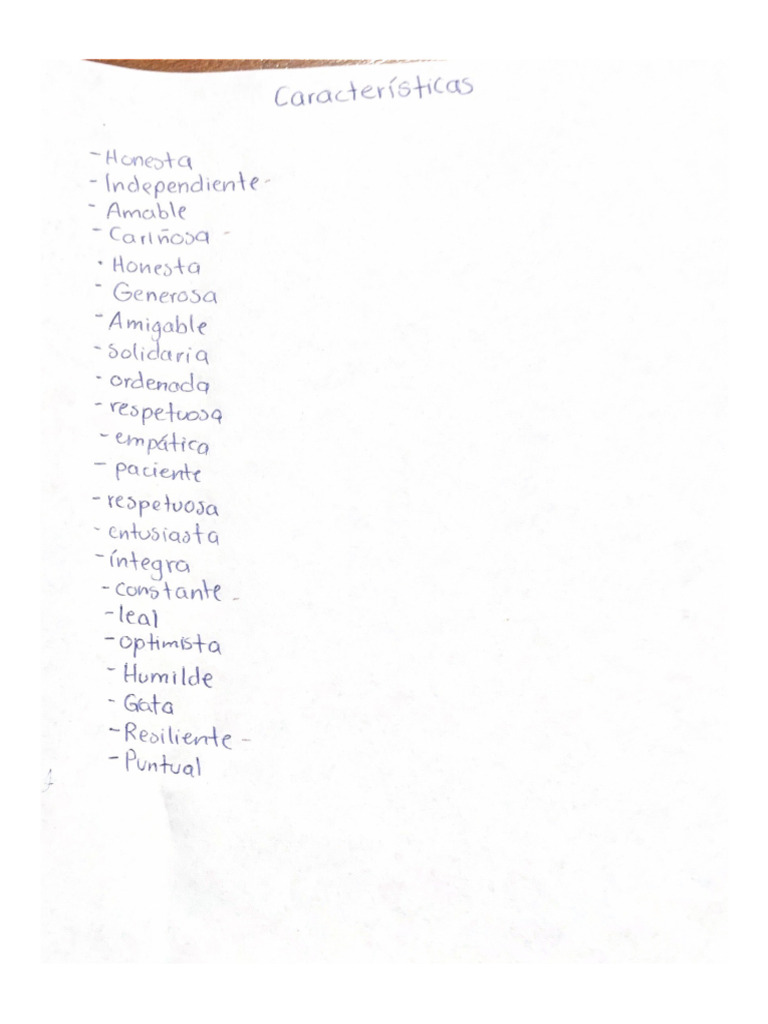 Características
- Honesta
- Independiente -
- Amable
- Cariñosa -
- Honesta
- Generosa
- Amigable
- Solidaria
- ordenada
- respetuosa
- empática
- paciente
- respetuosa
- entusiasta
- íntegra
- constante -
- leal
- optimista
- Humilde
- Gata
- Resiliente -
- Puntual